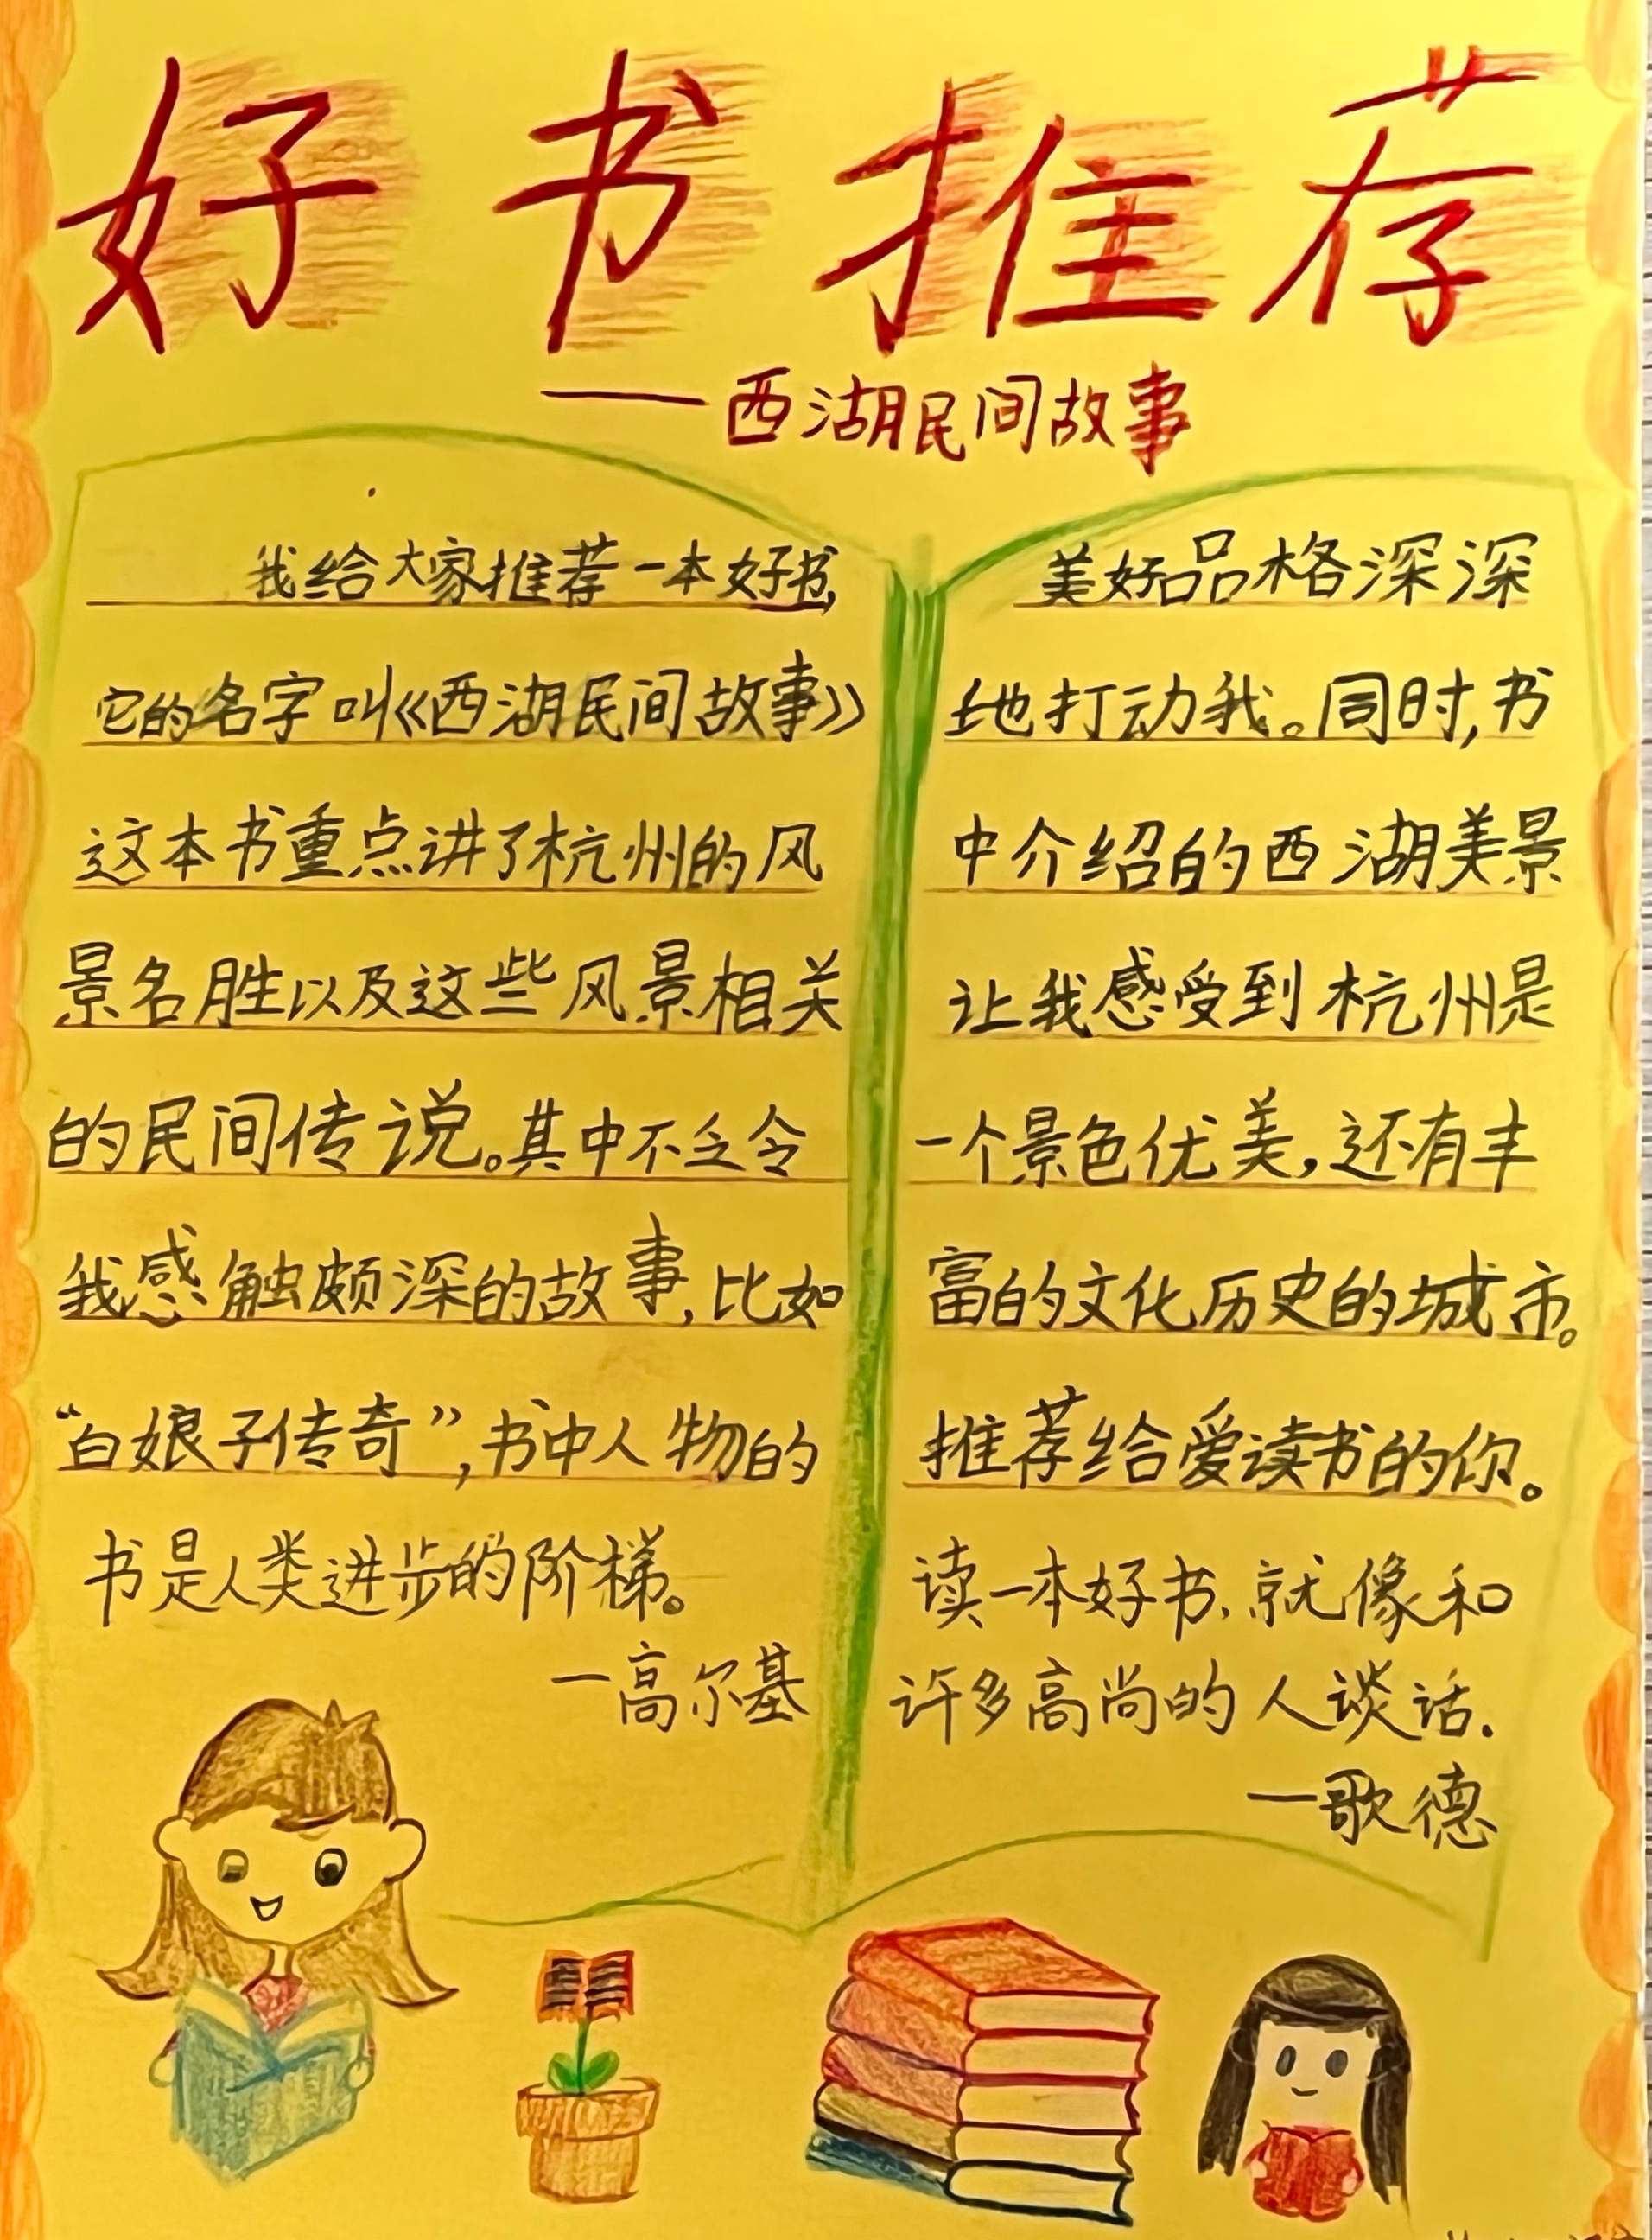 好书推荐
——西湖民间故事
我给大家推荐一本好书,
它的名字叫《西湖民间故事》
这本书重点讲了杭州的风
景名胜以及这些风景相关
的民间传说。其中不乏令
我感触颇深的故事,比如
“白娘子传奇”,书中人物的
书是人类进步的阶梯。
一高尔基
美好品格深深
地打动我。同时,书
中介绍的西湖美景
让我感受到杭州是
一个景色优美,还有丰
富的文化历史的城市。
推荐给爱读书的你。
读一本好书.就像和
许多高尚的人谈话.
一歌德